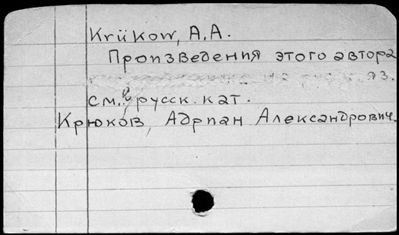 Krükow, A.A.
Произведения этого автора
яз.
см. в русск. кат.
Крюков, Адриан Александрович.